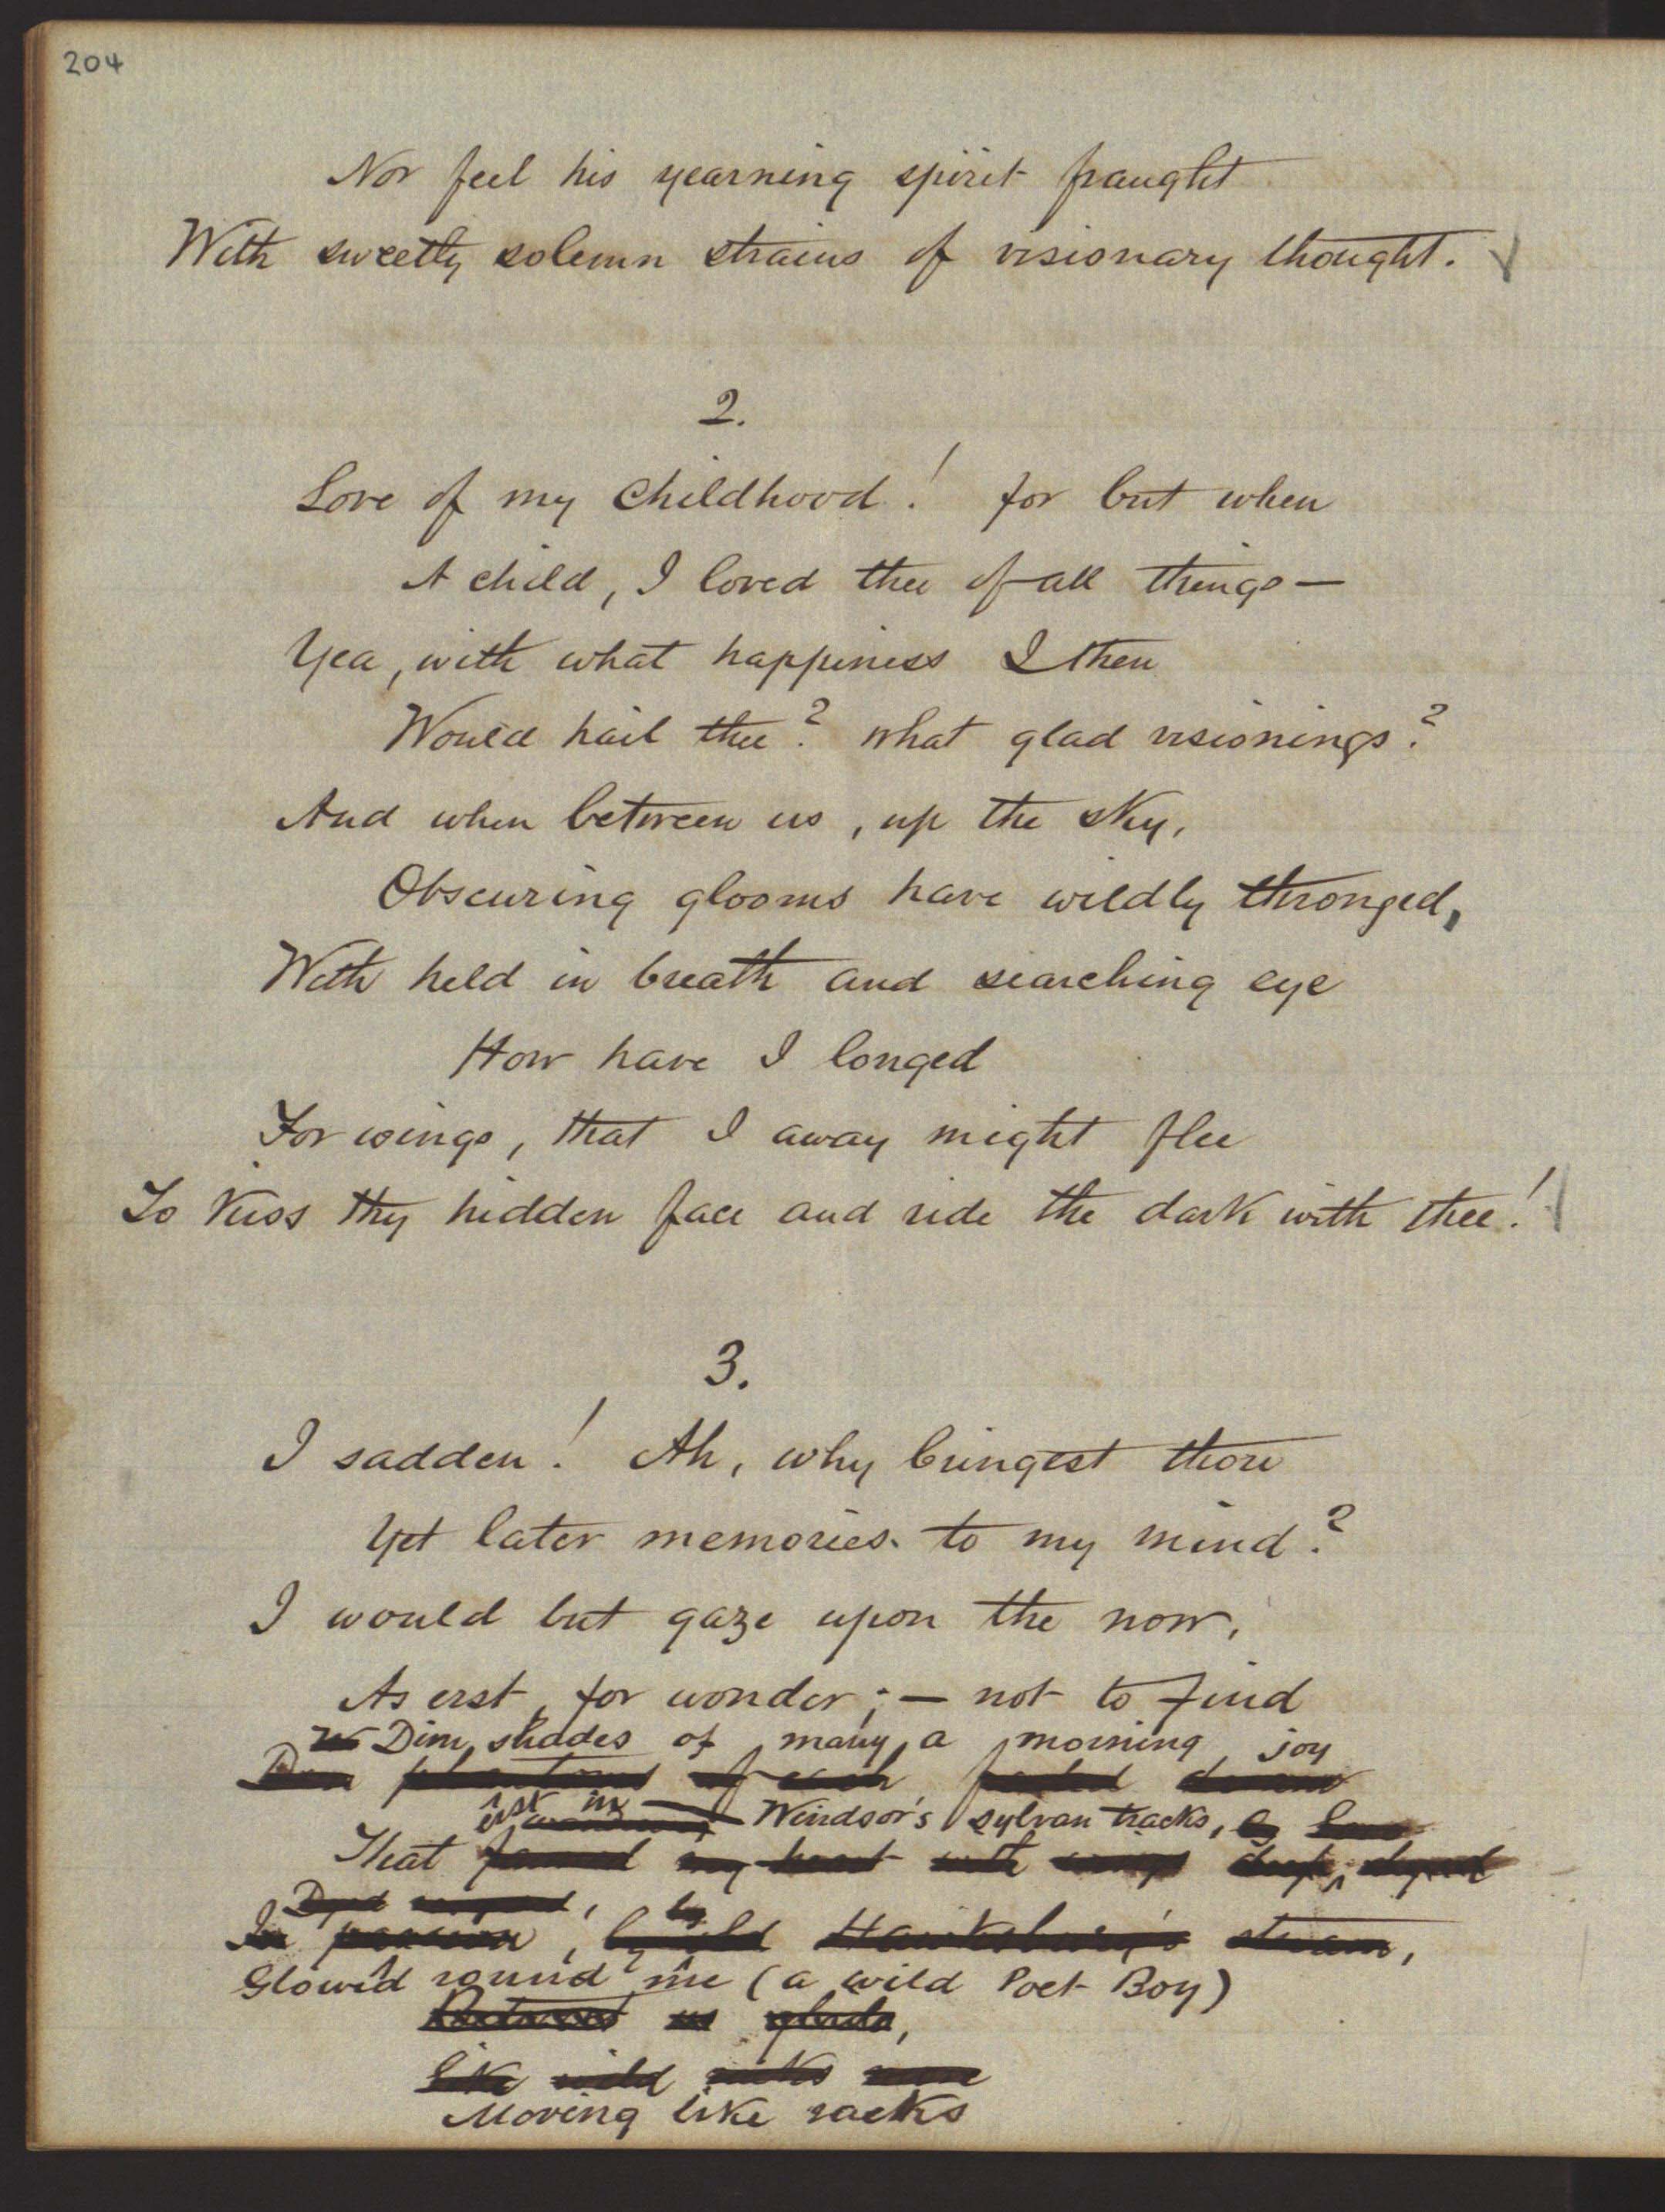 204
Nor feel his yearning spirit fraught
With sweetly solemn strains of visionary thought.
2.
Love of my Childhood! for but when
A child, I loved thee of all things —
Yea, with what happiness I then
Would hail thee? what glad visionings?
And when between us, up the sky,
Obscuring glooms have wildly thronged,
With held in breath and searching eye
How have I longed
For wings, that I away might flee
To kiss thy hidden face and ride the dark with thee!
3.
I sadden! Ah, why bringest thou
Yet later memories to my mind?
I would but gaze upon the now,
As erst, for wonder; — not to find
Dim shades of many a morning joy
Dim phantoms of each faded
erst in Windsor's sylvan tracks,
That my heart with wings deep,
In passion, by wild Hawksbury's stream,
by
Glow'd round me (a wild Poet Boy)
Between us glide,
Like wild racks
Moving like racks